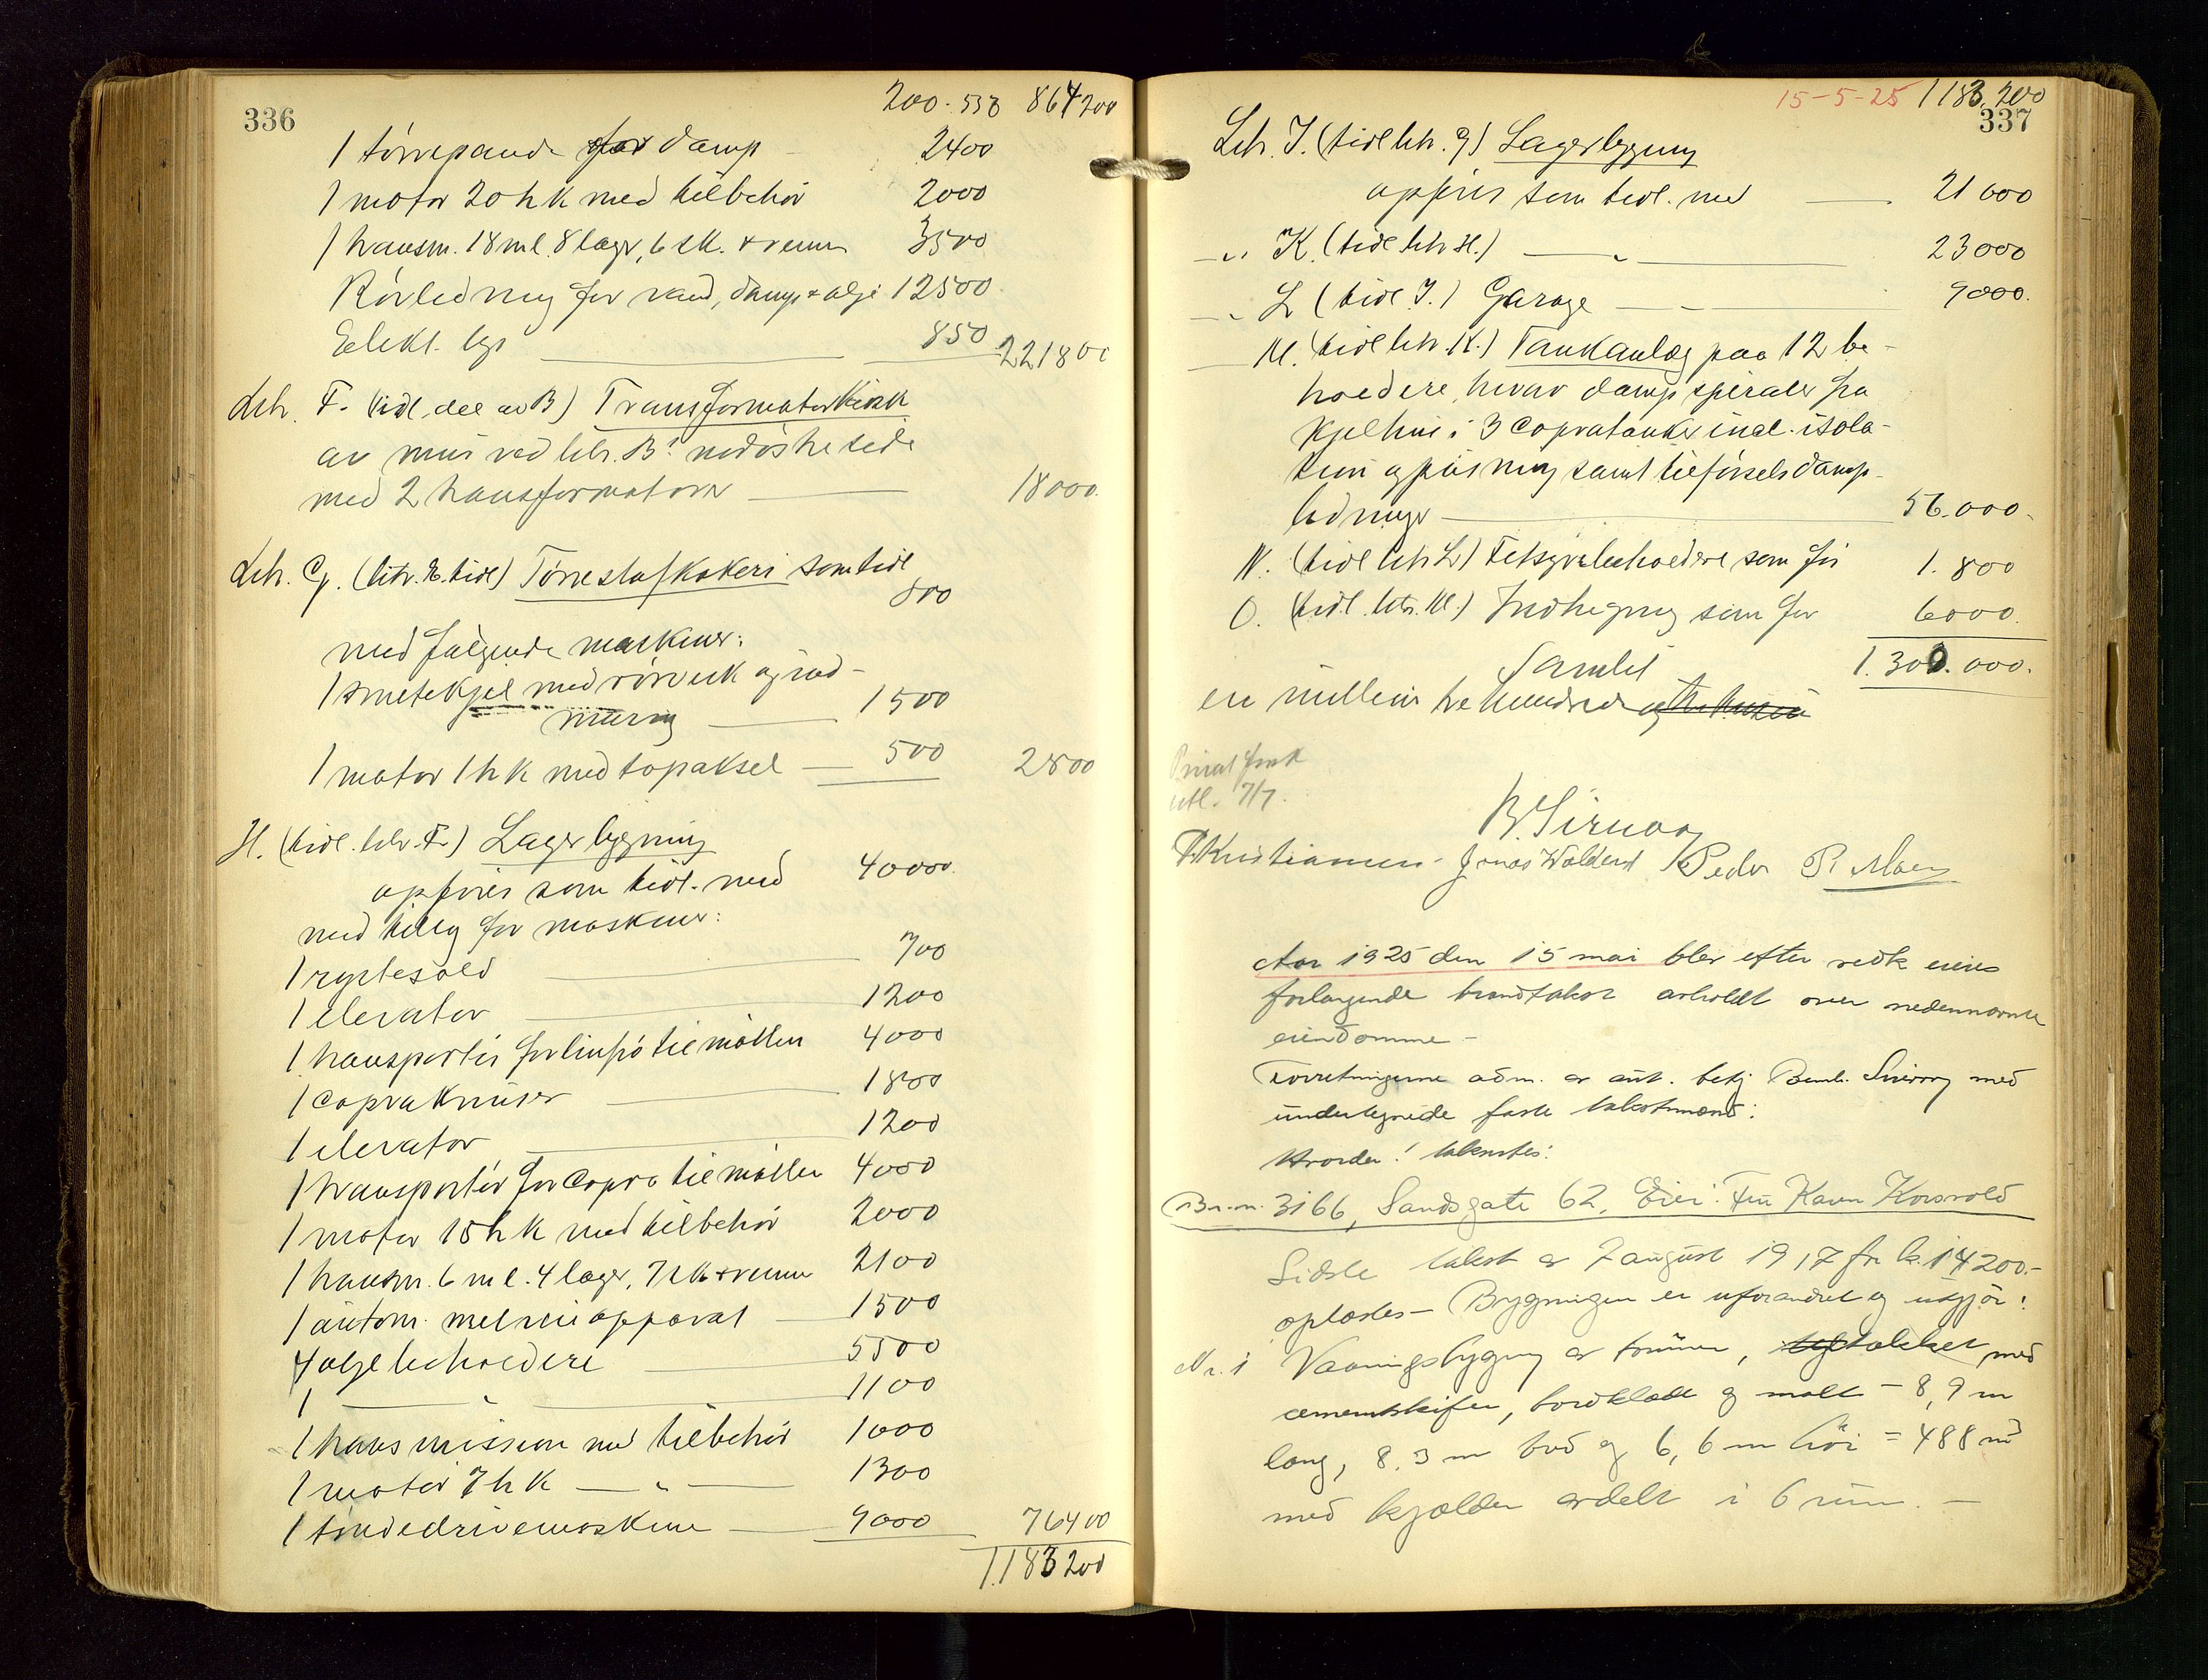 336
200.550 864200
1 tørrepande for damp 2400
1 motor 20 h k med tilbehør 2000
1 transm. 18 m l. 8 lager, 6 sk. + remm 3500
Rørledning for vand, damp + olje 12500
Elekt. lys 850 221800
Litr. F. (tidl. del av B) Transformatorkiosk
av mur ved litr. B's nordøstre side
med 2 transformatorer 18000.
Litr. G. (litr. E. tidl) Tørrestofkokeri som tidl
800
med følgende maskiner:
1 smeltekjel med rørverk og ind-
muring 1500
1 motor 1 h k med topaksel 500 2800
H. (tidl. litr. F.) Lagerbygning
opføres som tidl. med 40000.
med tillæg for maskiner:
1 rystesold 700
1 elevator 1200
1 transportør for linfrø til møllen 4000
1 Copraknuser 1800
1 elevator 1200
1 transportør for Copra til møllen 4000
1 motor 15 h k med tilbehør 2000
1 transm. 6 m l. 4 lager, 7 sk + remm 2100
1 autom. apparat 1500
4 oljebeholdere 5500
1 — " — 1100
1 transmission med tilbehør 1000
1 motor 7 h k — " — 1300
1 tøndedrivemaskine 9000 76400
1.183200
15-5-25 1183.200
337
Litr. J. (tidl litr. G) Lagerbygning
opføres som tidl. med 21000
— " K. (tidl litr H.) — " — 23000
— " L (tidl J.) Garage — " — 9000.
— M. (tidl litr. K.) Tankanlæg paa 12 be-
holdere, hvorav dampspiraler fra
kjelhus i 3 Copratanker incl. isola-
tion og pusning samt tilførselsdamp-
ledninger 56.000.
N. (tidl litr L) Fetsyrebeholdere som før 1.800
O. (tidl. litr. M.) Indhegning som før 6000.
Samlet 1.300.000.
en million tre hundrede
utl. 7/7.
B. Sirnov
Kristiansen Jonas Walderd Peder P. Moen
Aar 1925 den 15 mai blev efter vedk eieres
forlangende brandtakst avholdt over nedennævnte
eiendomme -
Forretningerne adm. av aut. bekj Bernh. Sirnov med
undertegnede faste takstmænd:
Hvorda! takseres:
Br. nr. 3166, Sandsgate 62. Eier: Fru Karen Korsvold
Sidste takst av 7 august 1917 for kr. 14200.-
oplæstes - Bygningen er uforandret og utgjør:
Nr. 1 Vaaningsbygning av tømmer, tegltækket med
cementskifer, bordklædt og malt - 8,9 m
lang, 8.3 m bred og 6,6 m høi = 488 m³
med kjælder avdelt i 6 rum. -